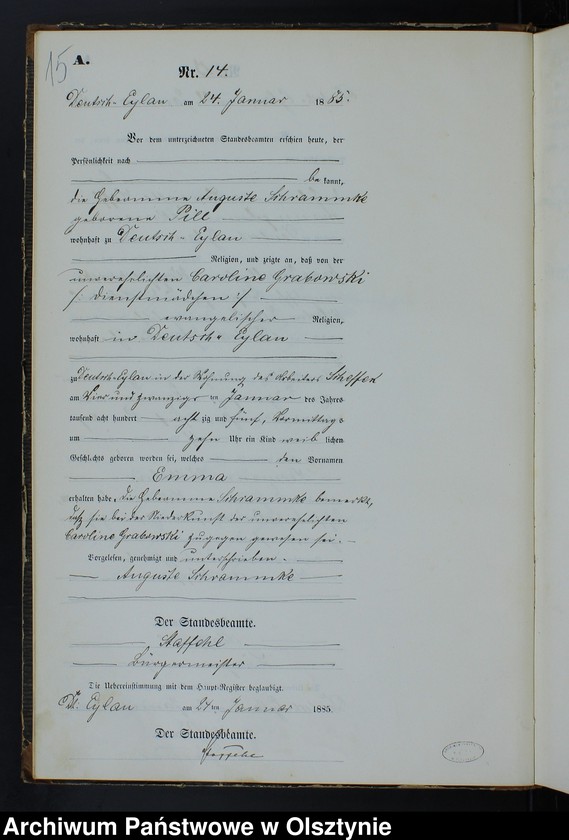 15
A.
Nr. 14.
Deutsch-Eylau am 24. Januar 1885.
Vor dem unterzeichneten Standesbeamten erschien heute, der
Persönlichkeit nach
bekannt,
die Hebamme Auguste Schrammke
geborene Pill
wohnhaft zu Deutsch-Eylau
Religion, und zeigte an, daß von der
unverehelichten Caroline Grabowski
/: Dienstmädchen :/
evangelischer Religion,
wohnhaft in Deutsch-Eylau
zu Deutsch-Eylau in der Wohnung des Arbeiters
am Vier und zwanzigs ten Januar des Jahres
tausend acht hundert acht zig und fünf, Vormittags
um zehn Uhr ein Kind weib lichen
Geschlechts geboren worden sei, welches den Vornamen
Emma
erhalten habe. Die Hebamme Schrammke bemerkte,
daß sie bei der Niederkunft der unverehelichten
Caroline Grabowski zugegen gewesen sei.
Vorgelesen, genehmigt und unterschrieben.
Auguste Schrammke
Der Standesbeamte.
Staffehl
Bürgermeister
Die Uebereinstimmung mit dem Haupt-Register beglaubigt.
Dt. Eylau am 24 ten Januar 1885.
Der Standesbeamte.
Archiwum Państwowe w Olsztynie